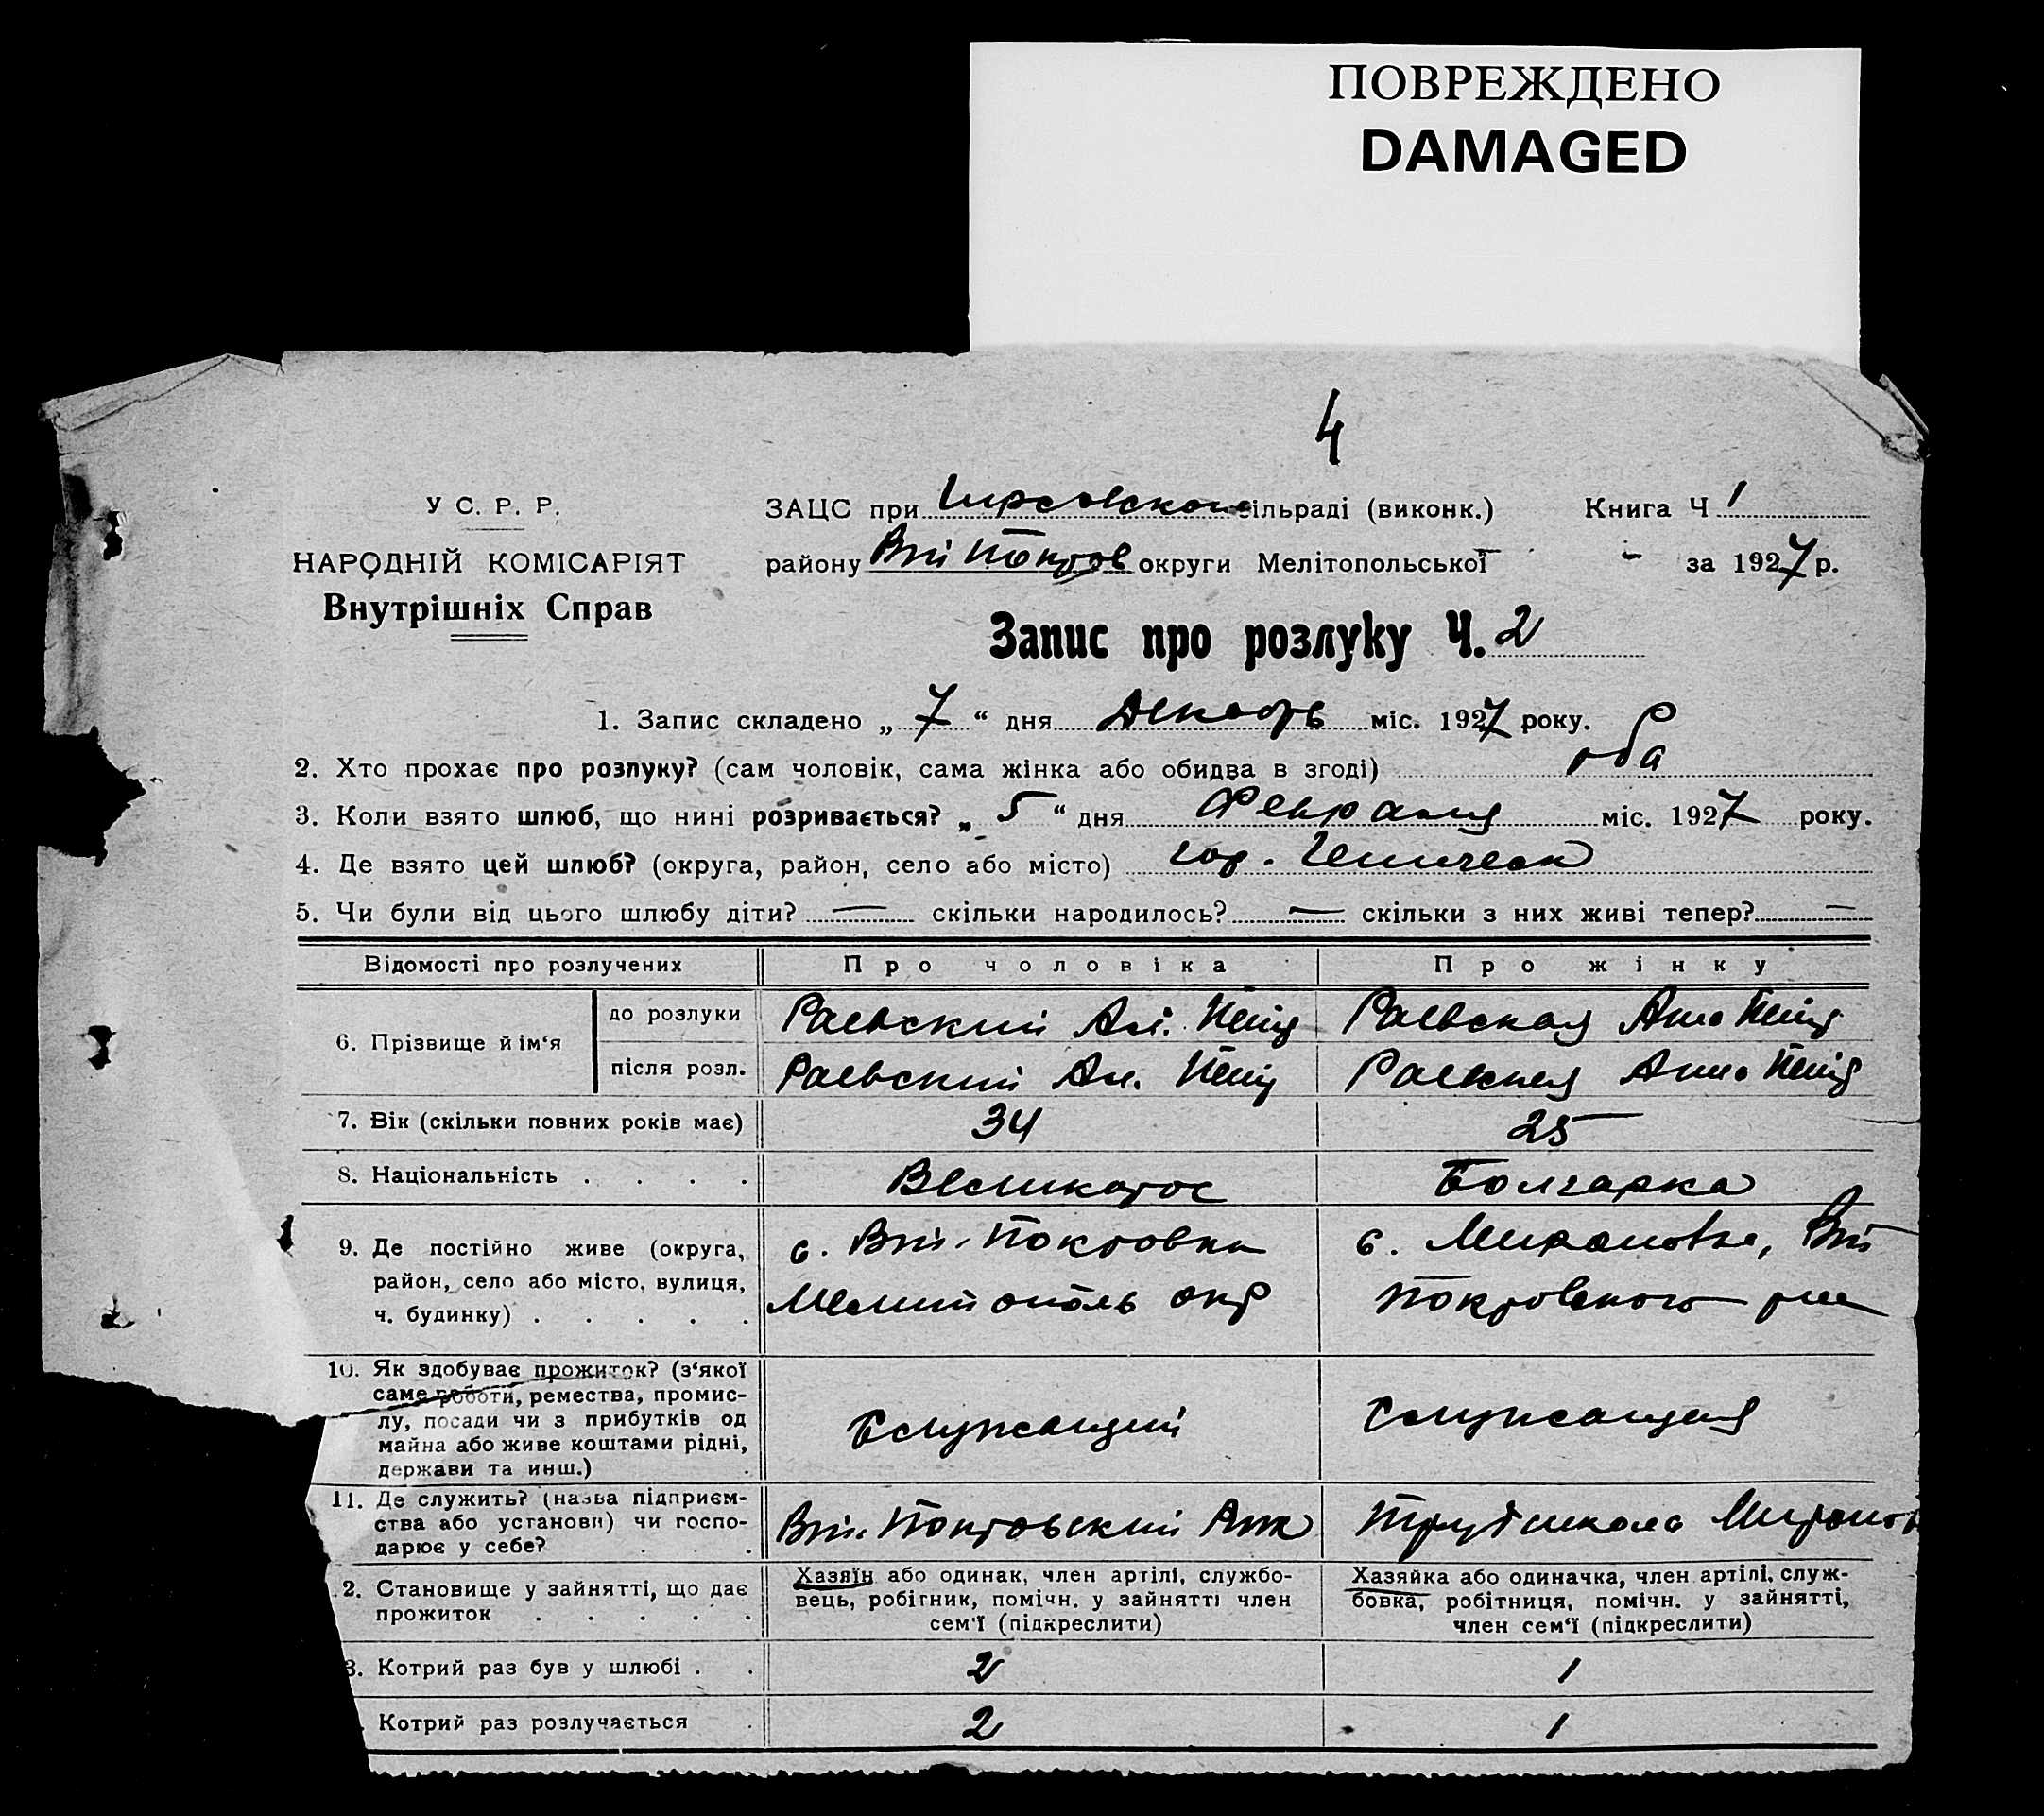 ПОВРЕЖДЕНО
DAMAGED
4
У С. Р. Р.
НАРОДНІЙ КОМІСАРІЯТ
Внутрішніх Справ
ЗАЦС при сільраді (виконк.) Книга Ч 1
району Вт. Покров округи Мелітопольської " за 1927 р.
Запис про розлуку Ч. 2
1. Запис складено „ 7 “ дня Декабрь міс. 1927 року.
2. Хто прохає про розлуку? (сам чоловік, сама жінка або обидва в згоді) оба
3. Коли взято шлюб, що нині розривається? „ 5 “ дня Февраля міс. 1927 року.
4. Де взято цей шлюб? (округа, район, село або місто) гор. Геническ
5. Чи були від цього шлюбу діти? — скільки народилось? — скільки з них живі тепер? —
Відомості про розлучених Про чоловіка Про жінку
6. Прізвище й ім‘я
до розлуки Раевский Ал. Раевская Анна
після розл. Раевский Ал. Раевская Анна
7. Вік (скільки повних років має) 34 25
8. Національність . . . . Великорос Болгарка
9. Де постійно живе (округа, район, село або місто, вулиця, ч. будинку) . . . . .
с. Вт. Покровка
Мелитополь окр
с. Мироновка, Вт
Покровского
10. Як здобуває прожиток? (з‘якої
саме роботи, ремества, промис-
лу, посади чи з прибутків од
майна або живе коштами рідні,
держави та инш.)
Служащий Служащая
11. Де служить? (назва підприєм-
ства або установи) чи госпо-
дарює у себе? . .
Вт. Покровский Трудшкола Миронов
.2. Становище у зайнятті, що дає
прожиток . . . . .
Хазяїн або одинак, член артілі, службо-
вець, робігник, помічн. у зайнятті член
сем‘ї (підкреслити)
Хазяйка або одиначка, член артілі, служ-
бовка, робітниця, помічн. у зайнятті,
член сем‘ї (підкреслити)
3. Котрий раз був у шлюбі . . 2 1
. Котрий раз розлучається . 2 1